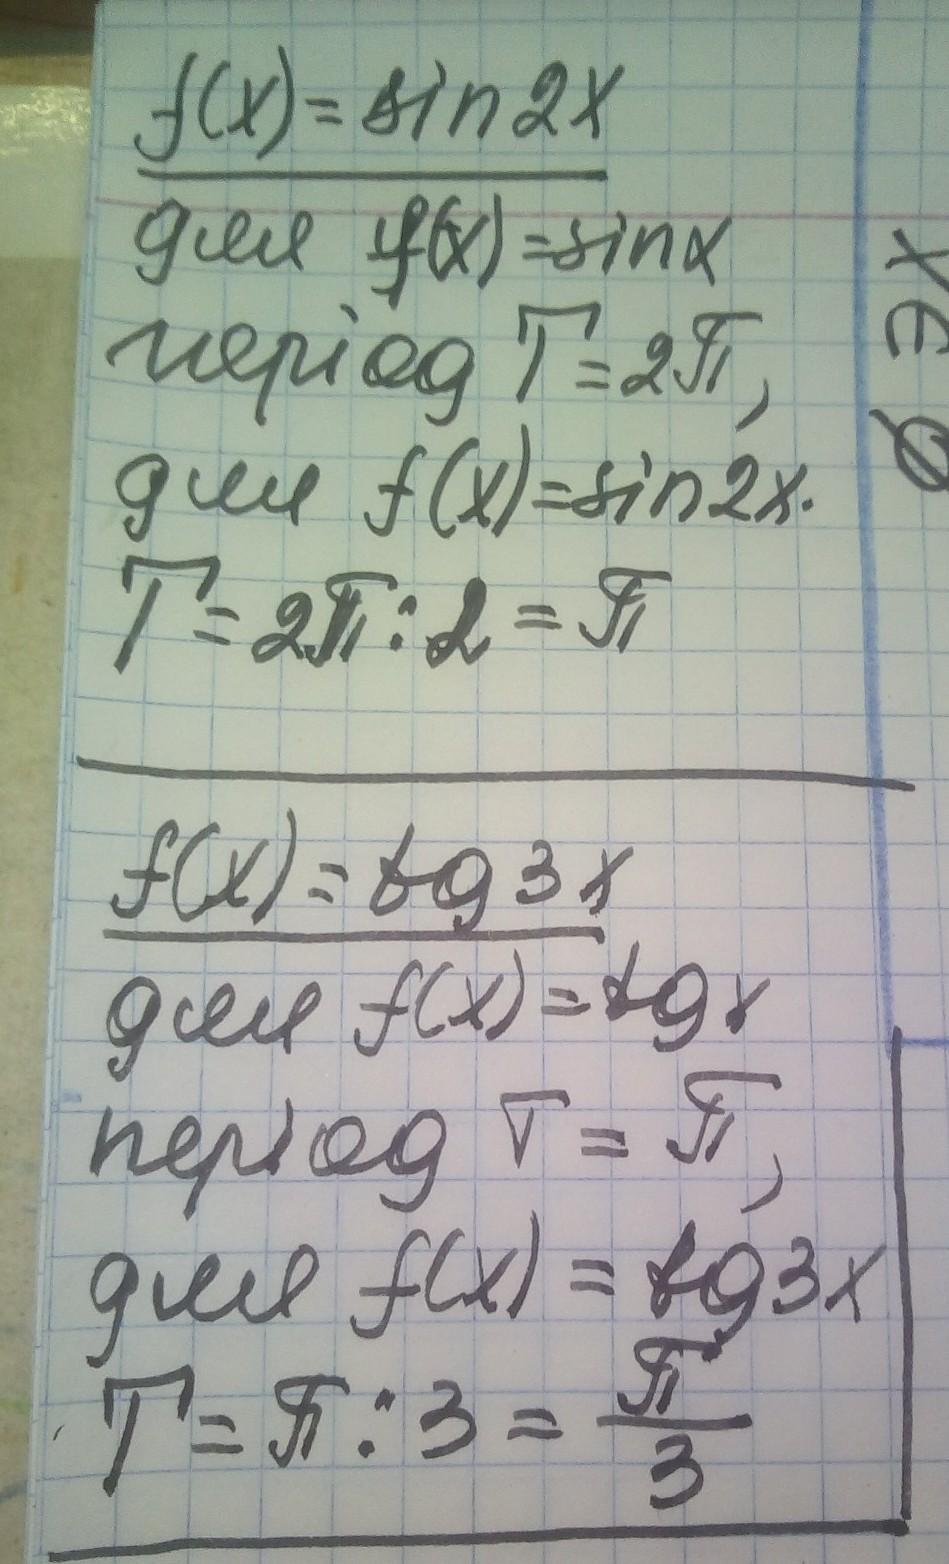 f(x) = sin2x
для f(x) = sinx
період T = 2π,
для f(x) = sin2x.
T = 2π : 2 = π
f(x) = tg3x
для f(x) = tgx
період T = π,
для f(x) = tg3x
T = π : 3 = π/3